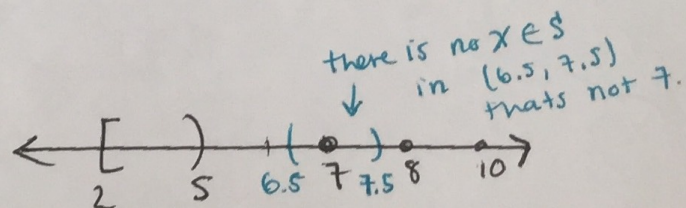 there is no x ∈ S
in (6.5, 7.5)
thats not 7.
[ )
( )
2 5 6.5 7 7.5 8 10